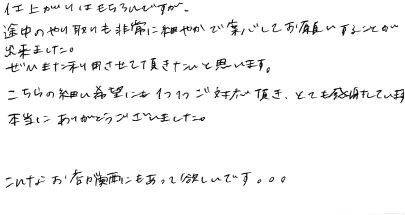 仕上がりはもちろんですが、
途中のやり取りも非常に細やかで安心してお願いすることが
出来ました。
ぜひまた利用させて頂きたいと思います。
こちらの細い希望にも1つ1つご対応頂き、とても感謝しています
本当にありがとうございました。
こんなお店が関西にもあって欲しいです。。。